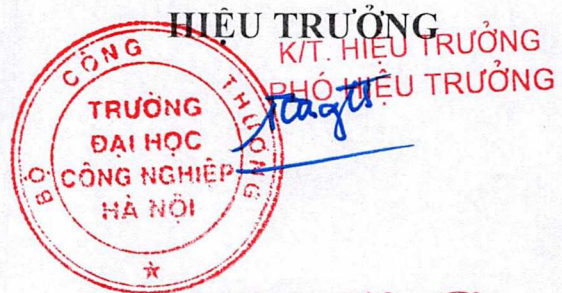 HIỆU TRƯỞNG
K/T. HIỆU TRƯỞNG
PHÓ HIỆU TRƯỞNG
BỘ CÔNG THƯƠNG
TRƯỜNG
ĐẠI HỌC
CÔNG NGHIỆP
HÀ NỘI